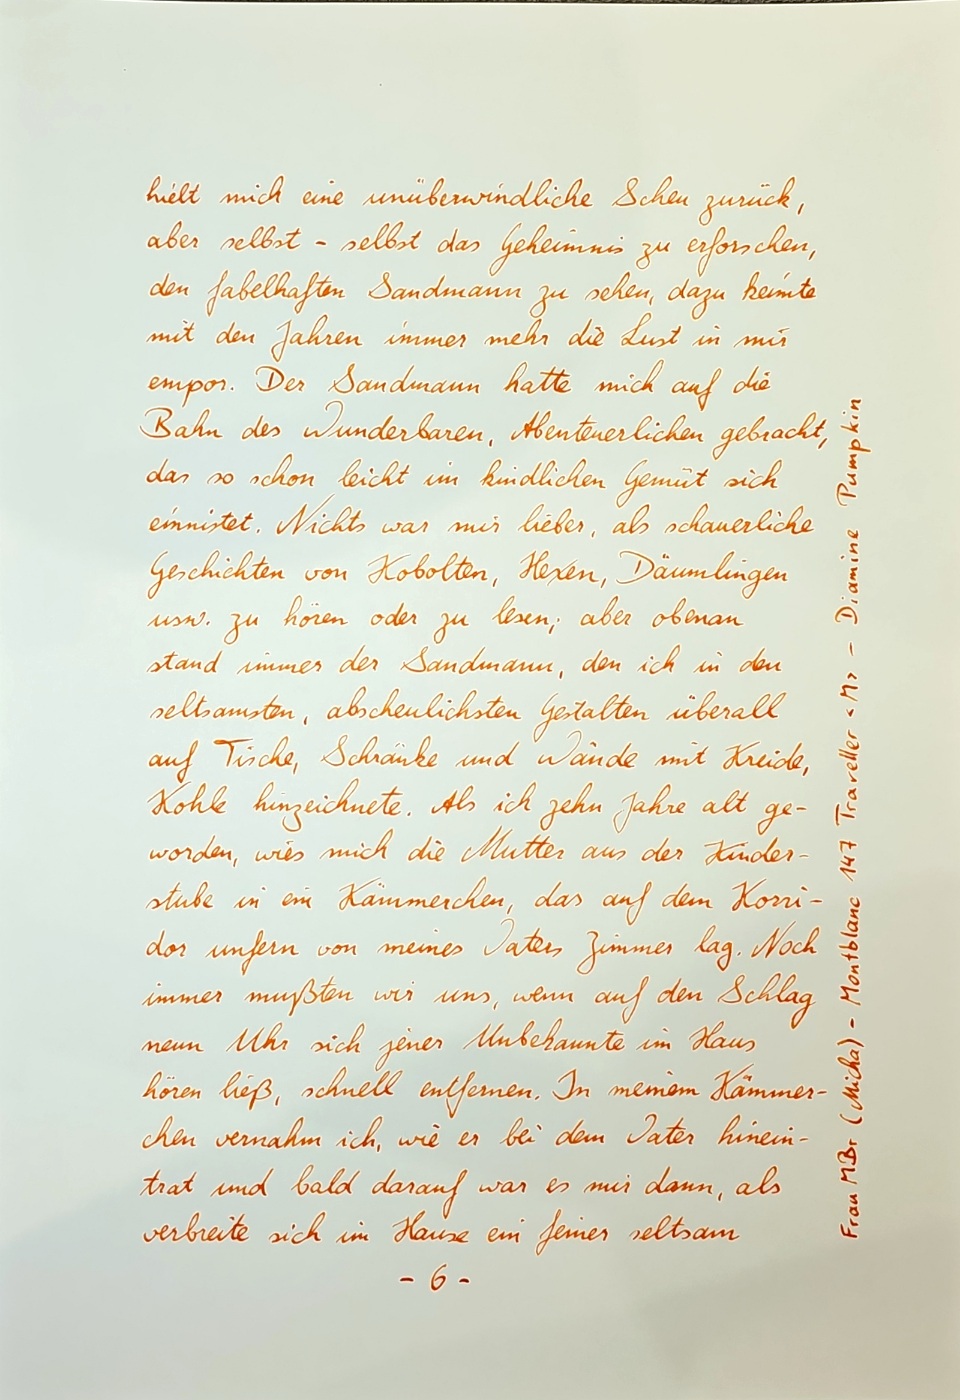 hielt mich eine unüberwindliche Scheu zurück,
aber selbst - selbst das Geheimnis zu erforschen,
den fabelhaften Sandmann zu sehen, dazu keimte
mit den Jahren immer mehr die Lust in mir
empor. Der Sandmann hatte mich auf die
Bahn des Wunderbaren, Abenteuerlichen gebracht,
das so schon leicht im kindlichen Gemüt sich
einnistet. Nichts war mir lieber, als schauerliche
Geschichten von Kobolten, Hexen, Däumlingen
usw. zu hören oder zu lesen; aber obenan
stand immer der Sandmann, den ich in den
seltsamsten, abscheulichsten Gestalten überall
auf Tische, Schränke und Wände mit Kreide,
Kohle hinzeichnete. Als ich zehn Jahre alt ge-
worden, wies mich die Mutter aus der Kinder-
stube in ein Kämmerchen, das auf dem Korri-
dor unfern von meines Vaters Zimmer lag. Noch
immer mußten wir uns, wenn auf den Schlag
neun Uhr sich jener Unbekannte im Haus
hören ließ, schnell entfernen. In meinem Kämmer-
chen vernahm ich, wie er bei dem Vater hinein-
trat und bald darauf war es mir dann, als
verbreite sich im Hause ein feiner seltsam
- 6 -
Frau MBr (Micha) - Montblanc 147 Traveller <M> - Diamine Pumpkin